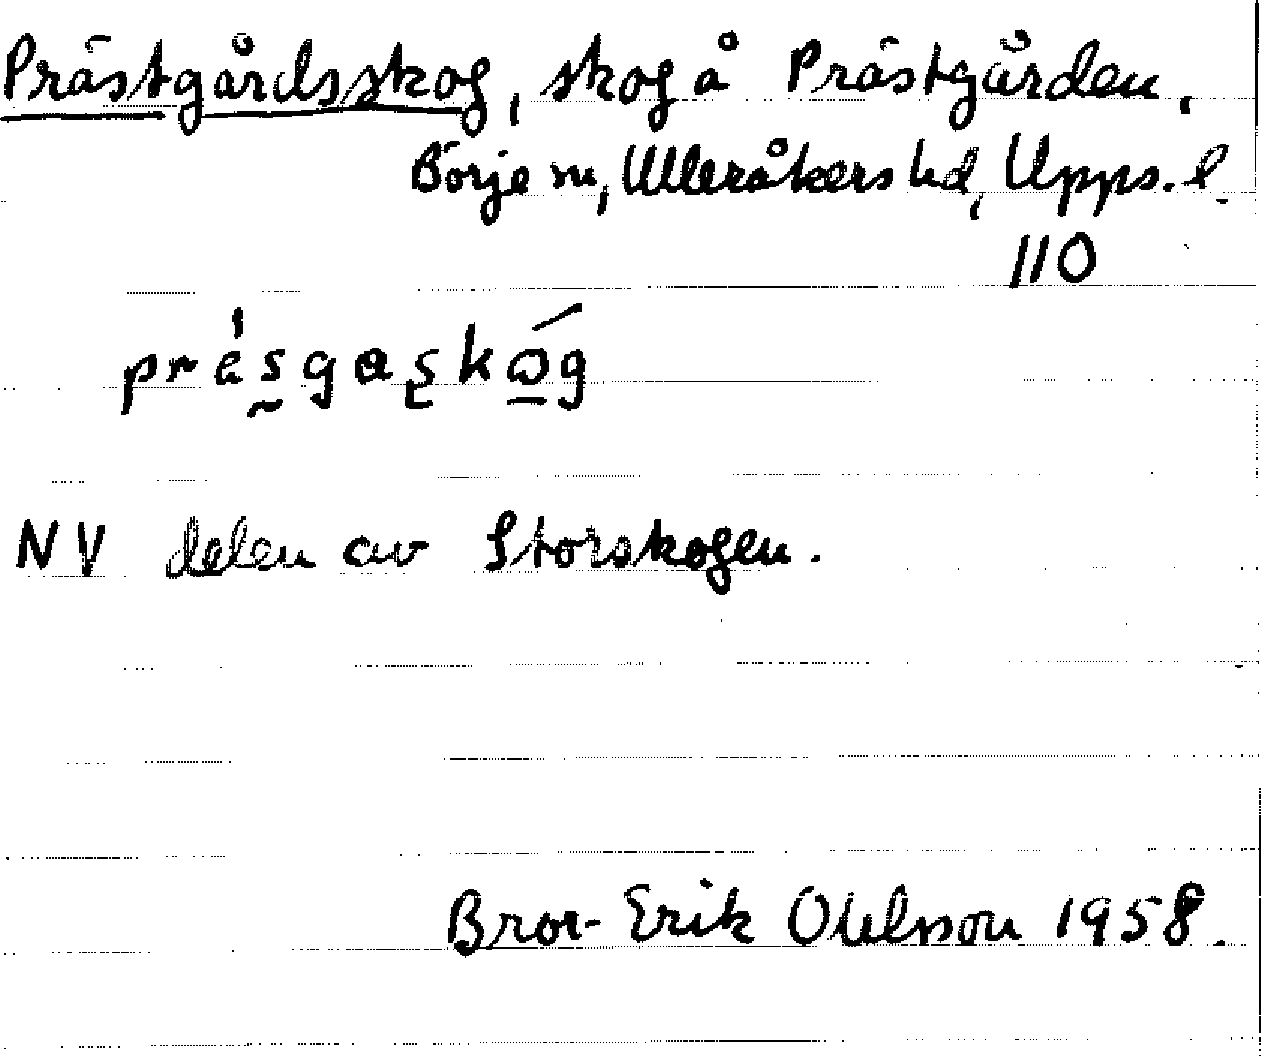 Prästgårdsskog, skog å Prästgården,
Börje sn, Ulleråkers hd, Upps. l.
110
präsgaskóg
NV delen av Storskogen.
Bror-Erik Ohlsson 1958.